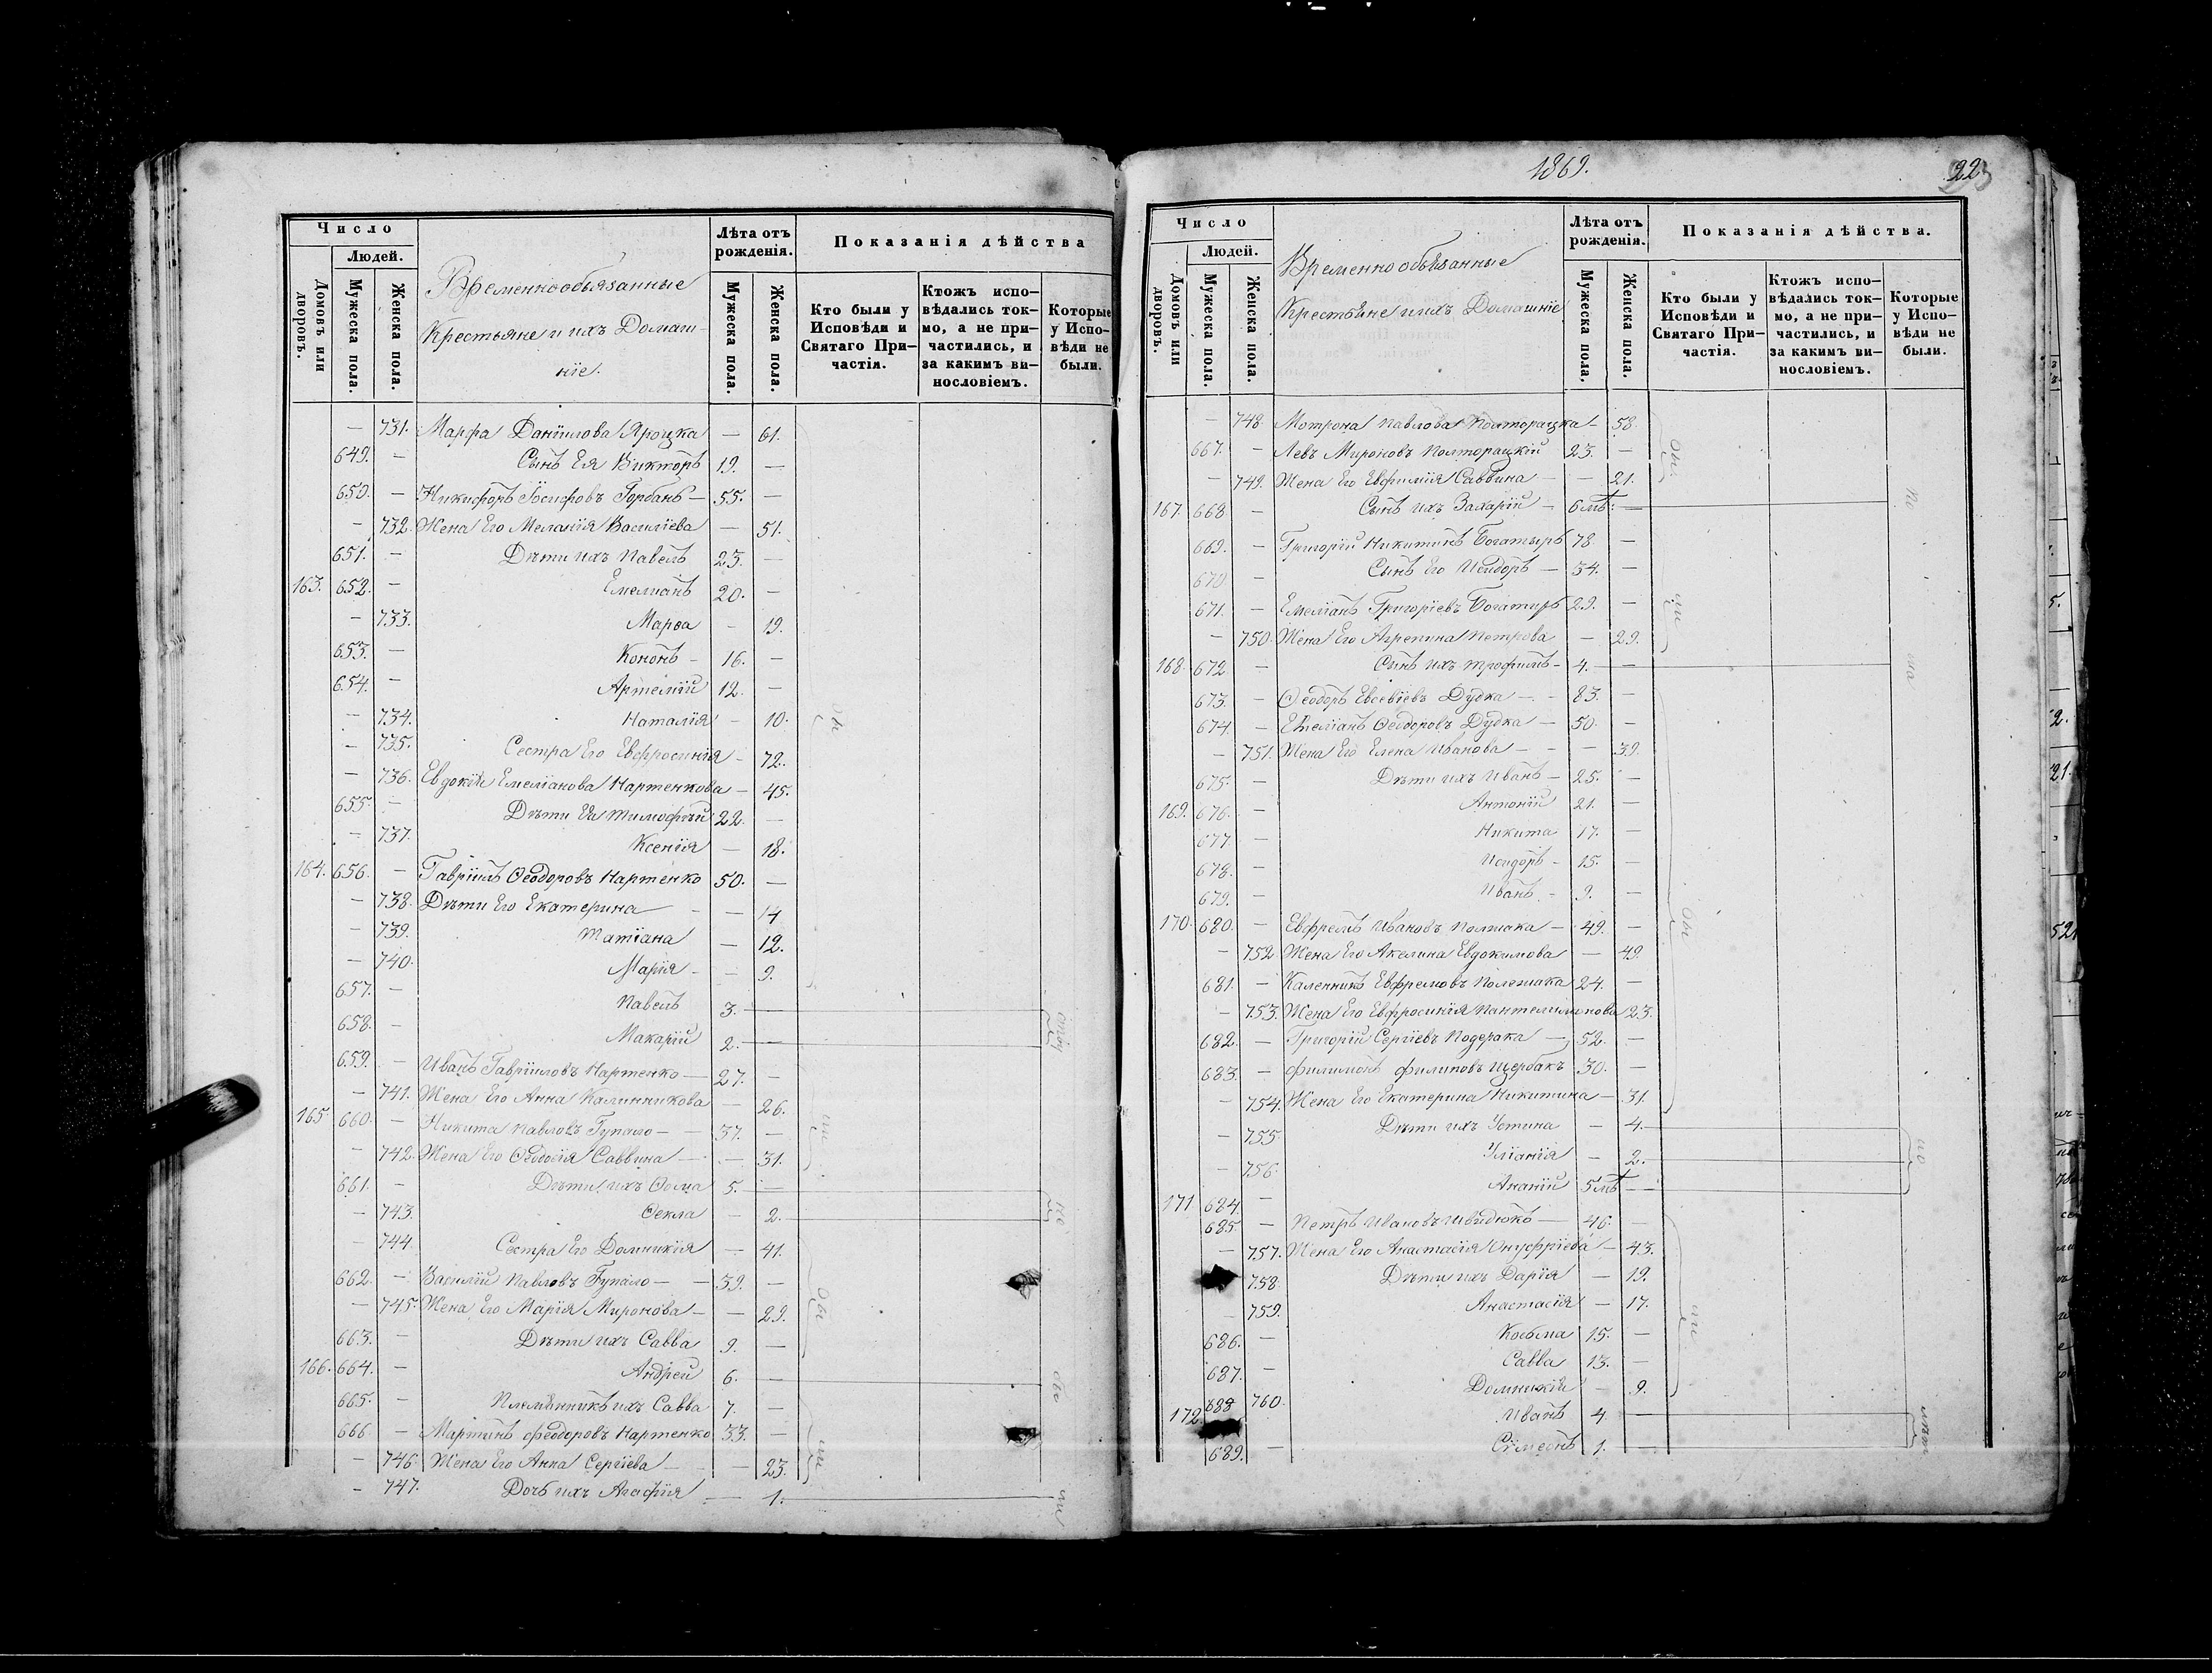 Число
Людей.
Домовъ или дворовъ.
Мужеска пола.
Женска пола.
Временнообязанные
Крестьяне и ихъ Домаш-
ніе.
Лѣта отъ рожденія.
Мужеска пола.
Женска пола.
Показанія дѣйства
Кто были у Исповѣди и Святаго При-частія.
Ктожъ испо-вѣдались ток-мо, а не при-частились, и за какимъ ви-нословіемъ.
Которые у Испо-вѣди не были.
— 731. Марфа Даніилова Яроцка — 61.
649. — Сынъ Ея Викторъ 19. —
650. — Никифоръ Іосифовъ Горбань — 55. —
— 732. Жена Его Меланія Василіева — 51.
651. — Дѣти ихъ Павелъ 23. —
163. 652. — Емелианъ 20. —
— 733. Марѳа — 19.
653. — Кононъ — 16. —
654. — Артемій 12. —
— 734. Наталія — 10.
— 735. Сестра Его Евфросинія — 72.
— 736. Евдокія Емеліанова Нартенкова — 45.
655. — Дѣти Ея Тимофѣй 22. —
— 737. Ксенія — 18.
164. 656. — Гавріилъ Ѳеодоровъ Нартенко 50. —
— 738. Дѣти Его Екатерина — — 14
— 739. Татіана — 12.
— 740. Марія — — 9.
657. — Павелъ 3. —
658. — Макарій 2. —
659. — Иванъ Гавріиловъ Нартенко — 27. —
— 741. Жена Его Анна Калинникова — 26.
165 660. — Никита Павловъ Гупало — — 37. —
— 742. Жена Его Ѳеодосія Саввина — — 31.
661. — Дѣти ихъ Ѳома 5. —
— 743. Ѳекла — 2.
— 744. Сестра Его Домникія — 41.
662. — Василій Павловъ Гупало — — 39. —
— 745. Жена Его Марія Миронова — — 29.
663. — Дѣти ихъ Савва 9. —
166. 664. — Андрей 6. —
665. — Племянникъ ихъ Савва 7. —
666 — Мартинъ Феодоровъ Нартенко 33. —
— 746. Жена Его Анна Сергіева — — 23.
— 747. Дочь ихъ Агафія — 1.
1869.
22
Число
Людей.
Домовъ или дворовъ.
Мужеска пола.
Женска пола.
Временнообязанные
Крестьяне и ихъ Домашніе
Лѣта отъ рожденія.
Мужеска пола.
Женска пола.
Показанія дѣйства.
Кто были у Исповѣди и Святаго При-частія.
Ктожъ испо-вѣдались ток-мо, а не при-частились, и за какимъ ви-нословіемъ.
Которые у Испо-вѣди не были.
— 748. Мотрона Павлова Полторацка — 58.
667. — Левъ Мироновъ Полторацкій 23. —
— 749. Жена Его Евфимія Саввина — — 21.
167. 668 — Сынъ ихъ Захарій — 6 мѣ. —
669. — Григорій Никитинъ Богатырь 78. —
670 — Сынъ Его Исидоръ — 34. —
671. — Емеліанъ Григоріевъ Богатирь 29. —
— 750. Жена Его Агрепина Петрова — 29.
168. 672. — Сынъ ихъ Трофимъ — 4. —
673. — Ѳеодоръ Евсевіевъ Дудка — — 83. —
674. — Емеліанъ Ѳеодоровъ Дудка — 50. —
— 751. Жена Его Елена Иванова — — — 39.
675. — Дѣти ихъ Иванъ — 25. —
169. 676. — Антоній 21. —
677. — Никита 17. —
678. — Исидоръ — 15. —
679. — Иванъ — 9. —
170. 680. — Евфремъ Ивановъ Полшака — 49. —
— 752. Жена Его Акелина Евдокимова — 49.
681. — Каленникъ Евфремовъ Полешака 24. —
— 753. Жена Его Евфросинія Пантелимонова 23.
682. — Григорій Сергіевъ Подерака — 52. —
683. — Филимонъ Филиповъ Щербакъ 30. —
— 754. Жена Его Екатерина Никитина — 31.
— 755. Дѣти ихъ Устина — 4.
— 756. Уліанія — 2.
171. 684. — Ананій 5 мѣ —
685. — Петръ Ивановъ Швидюкъ — 46. —
— 757. Жена Его Анастасія Онуфріева — 43.
758. Дѣти ихъ Дарія — 19.
759. Анастасія — 17.
686. — Косьма 15. —
687. — Савва 13. —
760. Домникія — 9.
172. 688 Иванъ 4. —
689. — Симеонъ 1. —